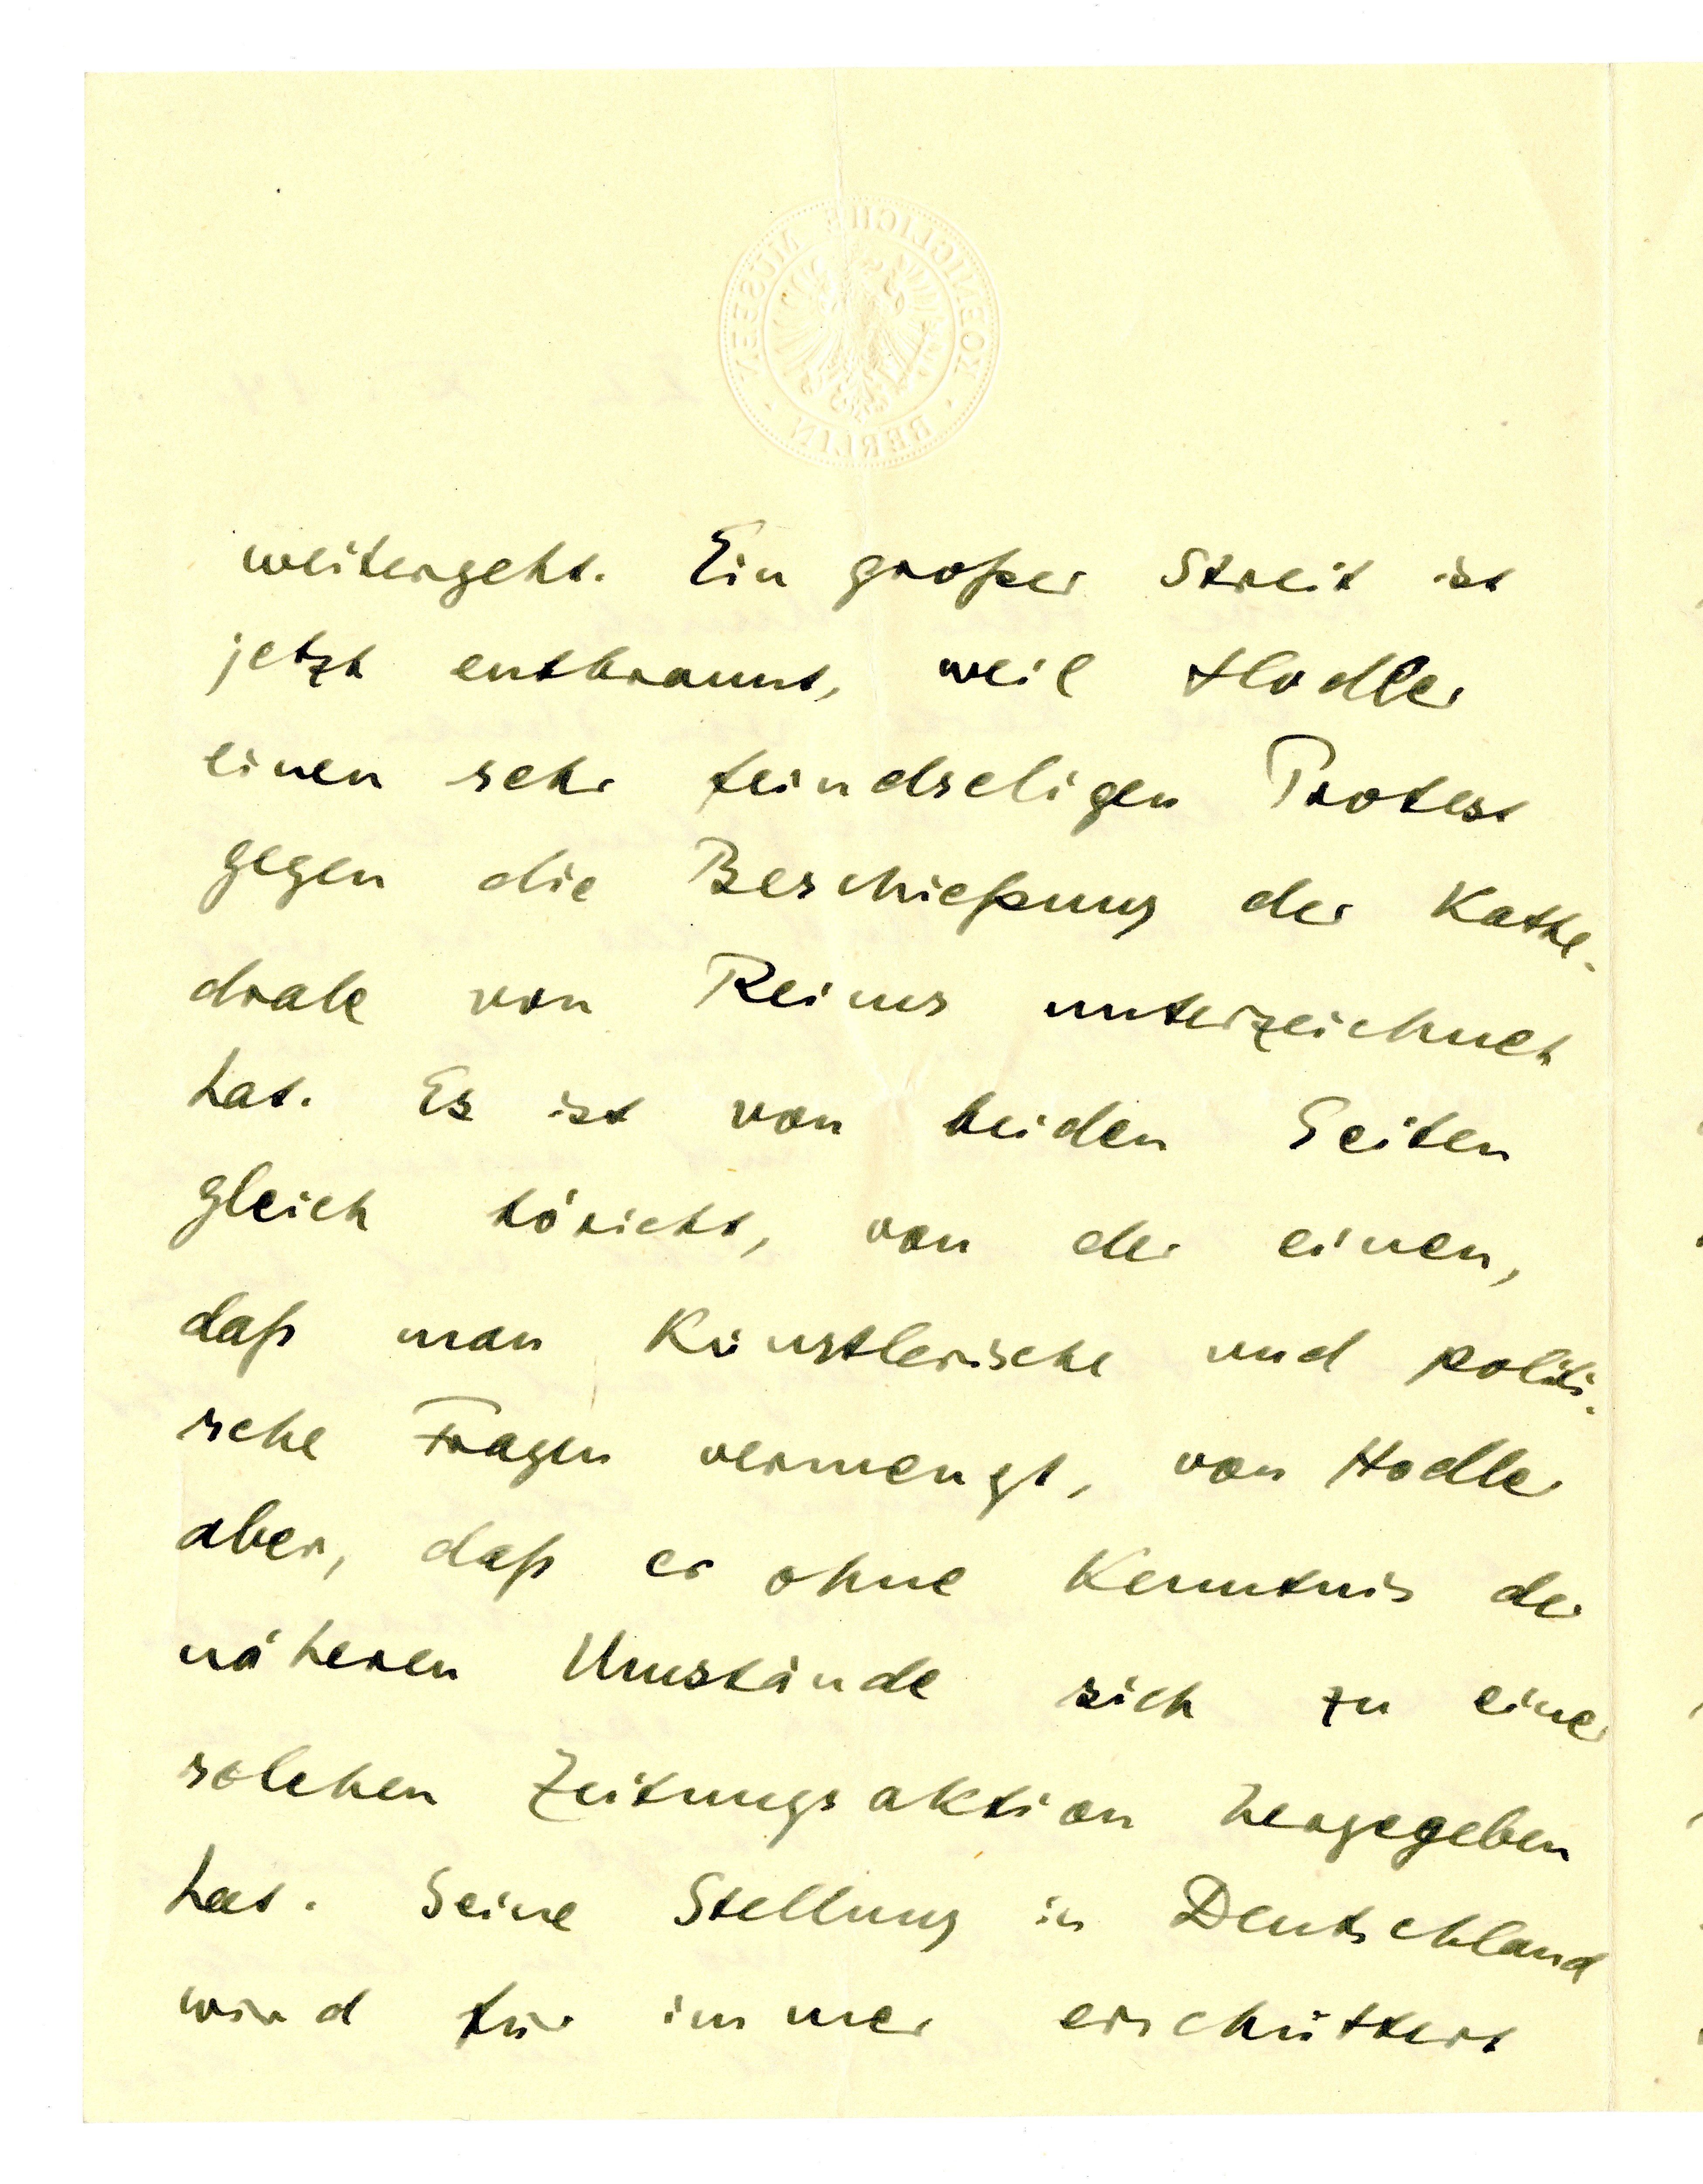 KOENIGLICHE MUSEEN
BERLIN
weitergeht. Ein großer Streit ist
jetzt entbrannt, weil Hodler
einen sehr feindseligen Protest
gegen die Beschießung der Kathe-
drale von Reims unterzeichnet
hat. Es ist von beiden Seiten
gleich töricht, von der einen,
daß man Künstlerische und politi-
sche Fragen vermengt, von Hodler
aber, daß er ohne Kenntnis der
näheren Umstände sich zu einer
solchen Zeitungsaktion hergegeben
hat. Seine Stellung in Deutschland
wird für immer erschüttert